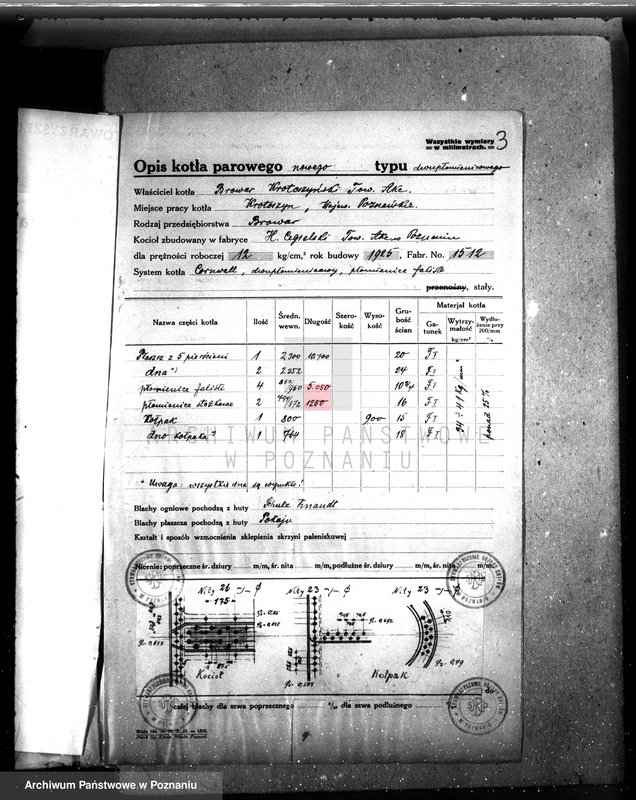 Wszystkie wymiary
w milimetrach.
3
Opis kotła parowego nowego typu dwupłomienicowego
Właściciel kotła Browar Krotoszyński Tow. Akc.
Miejsce pracy kotła Krotoszyn, Wojew. Poznańskie
Rodzaj przedsiębiorstwa Browar
Kocioł zbudowany w fabryce H. Cegielski Tow. Akc. Poznaniu
dla prężności roboczej 12 kg/cm,² rok budowy 1925, Fabr. No. 1512
System kotła Cornwall, dwupłomienicowy, płomienice faliste
przenośny, stały.
Nazwa części kotła Ilość Średn. wewn. Długość Szerokość Wysokość Grubość ścian Materjał kotła
Gatunek Wytrzymałość kg/cm² Wydłużenie przy 200/mm %
Płaszcz z 5 pierścieni 1 2300 10.700 20 FI
dna*) 2 2252 24 FI
płomienice faliste 4 850/950 5.050 FI
płomienice stożkowe 2 1250 16 FI
Kołpak 1 800 900 15 FI
dno kołpaka*) 1 764 18 FI
34 ÷ 41 kg/mm²
ponad 25%
ARCHIWUM PAŃSTWOWE
W POZNANIU
* Uwaga: wszystkie dna są wypukłe!
Blachy ogniowe pochodzą z huty
Blachy płaszcza pochodzą z huty Pokoju
Kształt i sposób wzmocnienia sklepienia skrzyni paleniskowej
Nicenie: poprzeczne śr. dziury m/m, śr. nita m/m, podłużne śr. dziury m/m, śr. nita m/m.
Nity 26 m/m ϕ Nity 23 m/m ϕ Nity 23 m/m ϕ
175
Kocioł
Kołpak
całej blachy dla szwa poprzecznego % dla szwa podłużnego %
Archiwum Państwowe w Poznaniu